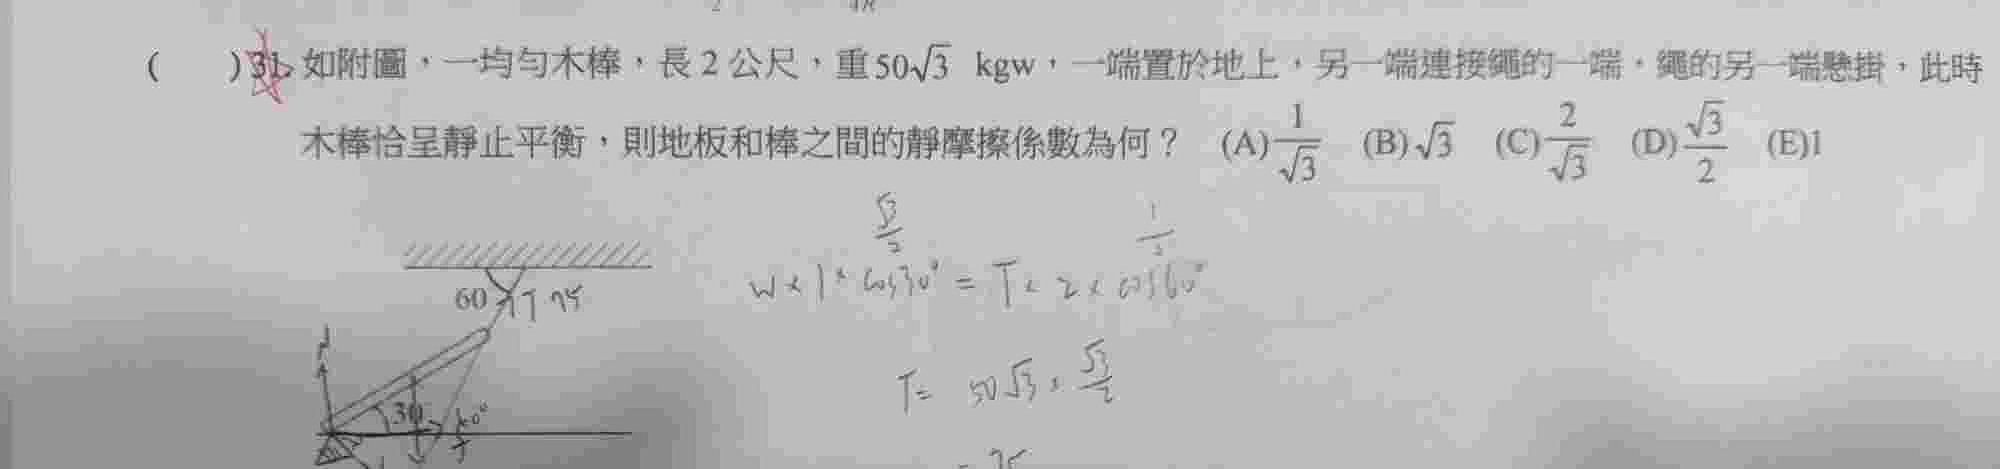 ( )31. 如附圖，一均勻木棒，長 2 公尺，重 50√3 kgw，一端置於地上，另一端連接繩的一端，繩的另一端懸掛，此時
木棒恰呈靜止平衡，則地板和棒之間的靜摩擦係數為何？ (A) 1/√3 (B) √3 (C) 2/√3 (D) √3/2 (E)1
√3/2 1/2
W×1×cos30°=T×2×cos60°
60 T 75
T= 50√3×√3/2
N
30 60°
=75